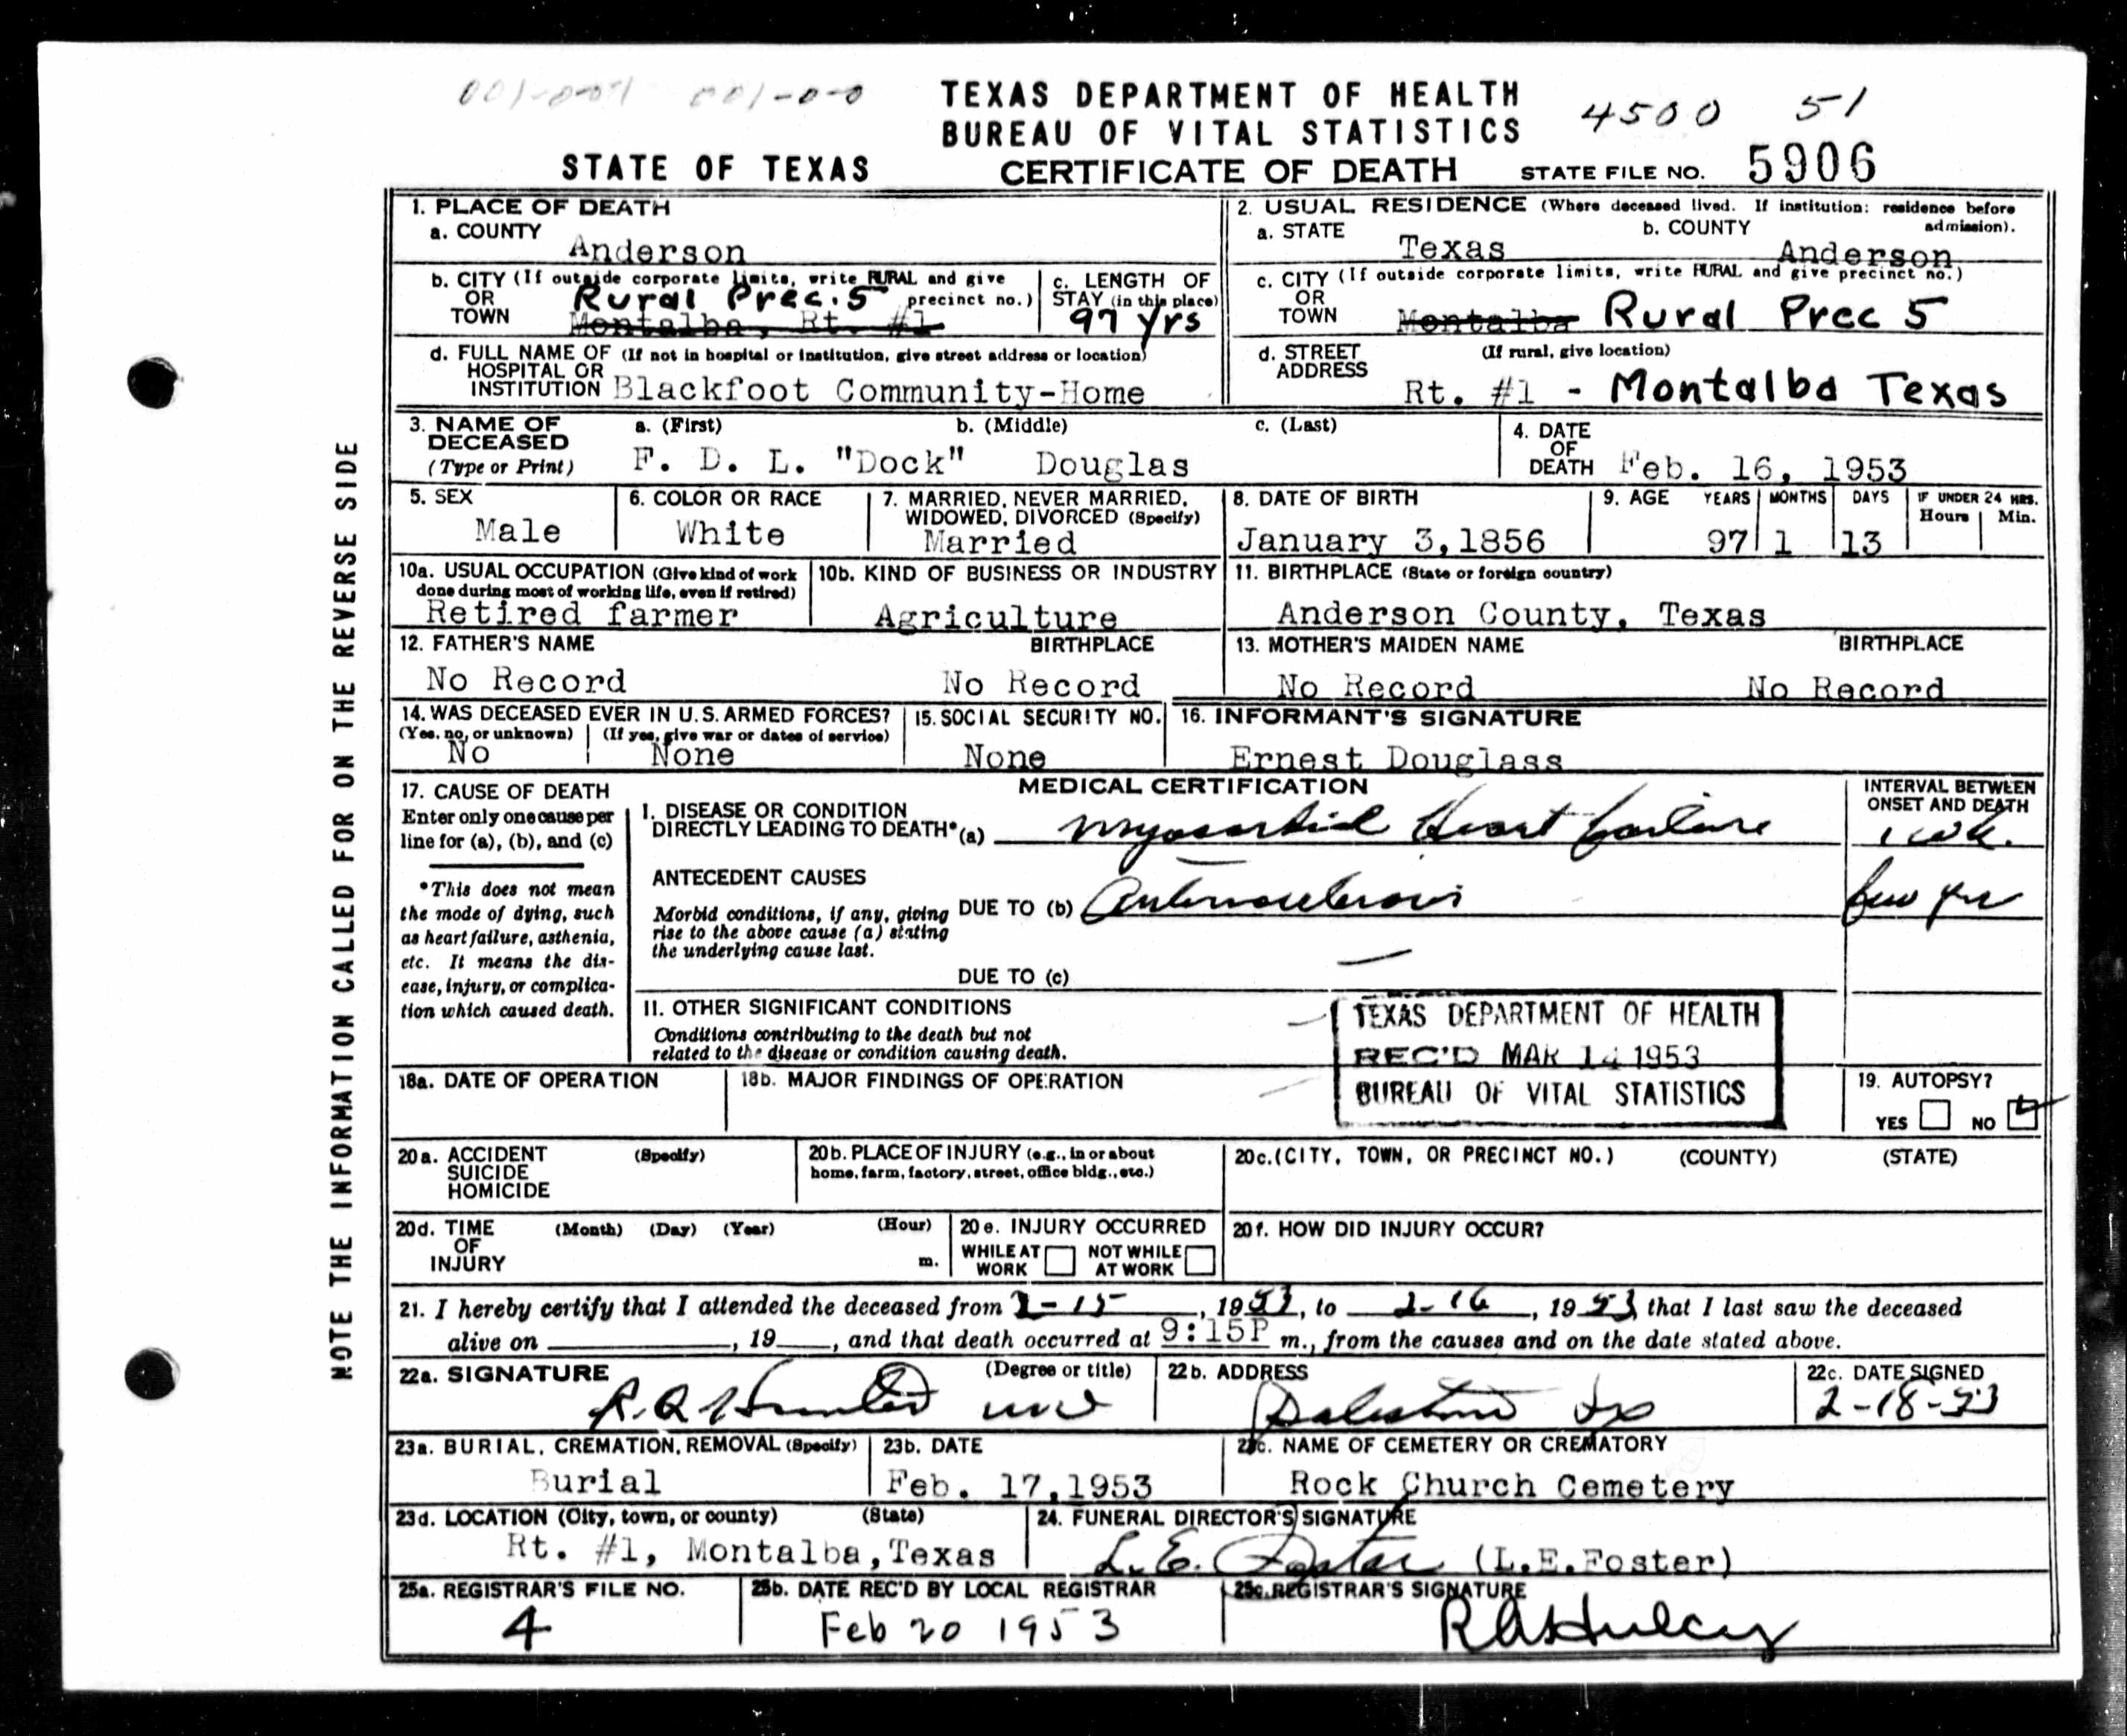 001-0-0
TEXAS DEPARTMENT OF HEALTH
4500 51
BUREAU OF VITAL STATISTICS
STATE OF TEXAS CERTIFICATE OF DEATH STATE FILE NO. 5906
NOTE THE INFORMATION CALLED FOR ON THE REVERSE SIDE
1. PLACE OF DEATH
a. COUNTY
Anderson
2. USUAL RESIDENCE (Where deceased lived. If institution: residence before admission).
a. STATE Texas b. COUNTY Anderson
b. CITY (If outside corporate limits, write RURAL and give precinct no.)
OR TOWN Rural Prec. 5
Montalba, Rt. #1
c. LENGTH OF STAY (in this place)
97 Yrs
c. CITY (If outside corporate limits, write RURAL and give precinct no.)
OR TOWN Montalba Rural Prec 5
d. FULL NAME OF HOSPITAL OR INSTITUTION (If not in hospital or institution, give street address or location)
Blackfoot Community-Home
d. STREET ADDRESS (If rural, give location)
Rt. #1 - Montalba Texas
3. NAME OF DECEASED (Type or Print)
a. (First) b. (Middle) c. (Last)
F. D. L. "Dock" Douglas
4. DATE OF DEATH Feb. 16, 1953
5. SEX
Male
6. COLOR OR RACE
White
7. MARRIED, NEVER MARRIED, WIDOWED, DIVORCED (Specify)
Married
8. DATE OF BIRTH
January 3,1856
9. AGE YEARS MONTHS DAYS IF UNDER 24 HRS. Hours Min.
97 1 13
10a. USUAL OCCUPATION (Give kind of work done during most of working life, even if retired)
Retired farmer
10b. KIND OF BUSINESS OR INDUSTRY
Agriculture
11. BIRTHPLACE (State or foreign country)
Anderson County, Texas
12. FATHER'S NAME BIRTHPLACE
No Record No Record
13. MOTHER'S MAIDEN NAME BIRTHPLACE
No Record No Record
14. WAS DECEASED EVER IN U.S. ARMED FORCES?
(Yes, no, or unknown) (If yes, give war or dates of service)
No None
15. SOCIAL SECURITY NO.
None
16. INFORMANT'S SIGNATURE
Ernest Douglass
17. CAUSE OF DEATH
Enter only one cause per
line for (a), (b), and (c)
*This does not mean
the mode of dying, such
as heart failure, asthenia,
etc. It means the dis-
ease, injury, or complica-
tion which caused death.
MEDICAL CERTIFICATION
INTERVAL BETWEEN ONSET AND DEATH
I. DISEASE OR CONDITION
DIRECTLY LEADING TO DEATH* (a) Myocardial Heart failure 1 wk.
ANTECEDENT CAUSES
Morbid conditions, if any, giving
rise to the above cause (a) stating
the underlying cause last.
DUE TO (b) Arteriosclerosis few yrs
DUE TO (c)
II. OTHER SIGNIFICANT CONDITIONS
Conditions contributing to the death but not
related to the disease or condition causing death.
TEXAS DEPARTMENT OF HEALTH
REC'D MAR 14 1953
BUREAU OF VITAL STATISTICS
18a. DATE OF OPERATION
18b. MAJOR FINDINGS OF OPERATION
19. AUTOPSY?
YES NO
20a. ACCIDENT SUICIDE HOMICIDE (Specify)
20b. PLACE OF INJURY (e.g., in or about home, farm, factory, street, office bldg., etc.)
20c. (CITY, TOWN, OR PRECINCT NO.) (COUNTY) (STATE)
20d. TIME OF INJURY (Month) (Day) (Year) (Hour) m.
20e. INJURY OCCURRED
WHILE AT WORK NOT WHILE AT WORK
20f. HOW DID INJURY OCCUR?
21. I hereby certify that I attended the deceased from 2-15, 1953, to 2-16, 1953, that I last saw the deceased
alive on , 19 , and that death occurred at 9:15P m., from the causes and on the date stated above.
22a. SIGNATURE (Degree or title)
R.Q. Hunter MD
22b. ADDRESS
Palestine Tex
22c. DATE SIGNED
2-18-53
23a. BURIAL, CREMATION, REMOVAL (Specify)
Burial
23b. DATE
Feb. 17,1953
23c. NAME OF CEMETERY OR CREMATORY
Rock Church Cemetery
23d. LOCATION (City, town, or county) (State)
Rt. #1, Montalba,Texas
24. FUNERAL DIRECTOR'S SIGNATURE
L.E. Foster (L.E.Foster)
25a. REGISTRAR'S FILE NO.
4
25b. DATE REC'D BY LOCAL REGISTRAR
Feb 20 1953
25c. REGISTRAR'S SIGNATURE
RA Hulcy